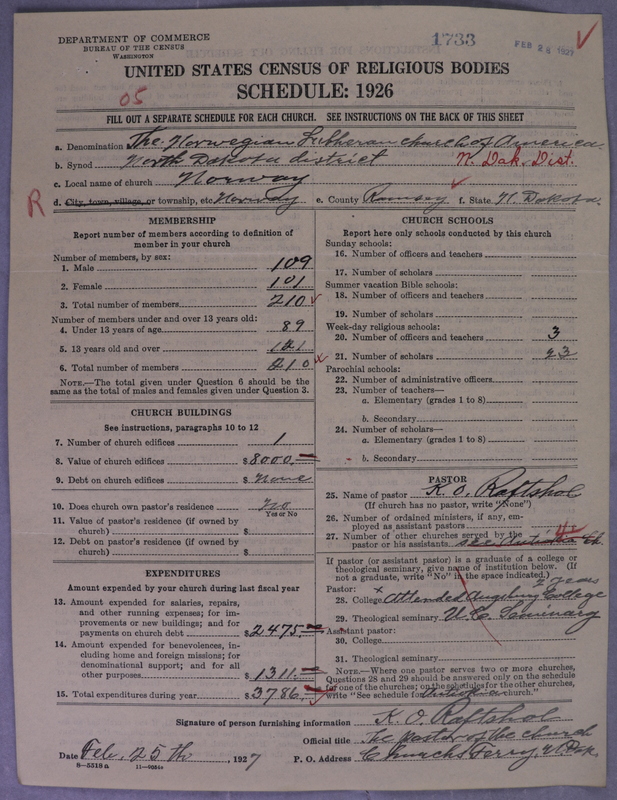 DEPARTMENT OF COMMERCE
BUREAU OF THE CENSUS
WASHINGTON
1733
FEB 28 1927
UNITED STATES CENSUS OF RELIGIOUS BODIES
SCHEDULE: 1926
05
FILL OUT A SEPARATE SCHEDULE FOR EACH CHURCH. SEE INSTRUCTIONS ON THE BACK OF THIS SHEET
a. Denomination The Norwegian Lutheran church of America
b. Synod North Dakota district N. Dak. Dist.
c. Local name of church Norway
R
d. City, town, village, or township, etc. Norway e. County Ramsey f. State N. Dakota.
MEMBERSHIP
Report number of members according to definition of member in your church
Number of members, by sex:
1. Male 109
2. Female 101
3. Total number of members 210
Number of members under and over 13 years old:
4. Under 13 years of age 89
5. 13 years old and over 121
6. Total number of members 210
NOTE.—The total given under Question 6 should be the same as the total of males and females given under Question 3.
CHURCH BUILDINGS
See instructions, paragraphs 10 to 12
7. Number of church edifices 1
8. Value of church edifices $ 8000.
9. Debt on church edifices $ None
10. Does church own pastor's residence? No
Yes or No
11. Value of pastor's residence (if owned by church) $
12. Debt on pastor's residence (if owned by church) $
EXPENDITURES
Amount expended by your church during last fiscal year
13. Amount expended for salaries, repairs, and other running expenses; for improvements or new buildings; and for payments on church debt $ 2475.
14. Amount expended for benevolences, including home and foreign missions; for denominational support; and for all other purposes $ 1311.
15. Total expenditures during year $ 3786.
CHURCH SCHOOLS
Report here only schools conducted by this church
Sunday schools:
16. Number of officers and teachers
17. Number of scholars
Summer vacation Bible schools:
18. Number of officers and teachers
19. Number of scholars
Week-day religious schools:
20. Number of officers and teachers 3
21. Number of scholars 93
Parochial schools:
22. Number of administrative officers
23. Number of teachers—
a. Elementary (grades 1 to 8)
b. Secondary
24. Number of scholars—
a. Elementary (grades 1 to 8)
b. Secondary
PASTOR
25. Name of pastor K. O. Raftshol
(If church has no pastor, write "None")
26. Number of ordained ministers, if any, employed as assistant pastors
27. Number of other churches served by the pastor or his assistants see Ch
If pastor (or assistant pastor) is a graduate of a college or theological seminary, give name of institution below. (If not a graduate, write "No" in the space indicated.)
Pastor: 2 years
28. College Attended Augsburg College
29. Theological seminary U. C. Seminary
Assistant pastor:
30. College
31. Theological seminary
NOTE.—Where one pastor serves two or more churches, Questions 28 and 29 should be answered only on the schedule for one of the churches; on the schedules for the other churches, write "See schedule for church."
Signature of person furnishing information K. O. Raftshol
Official title The pastor of the church
Date Feb. 25 th, 1927 P. O. Address Churchs Ferry, N. Dak.
8—5318 a 11—9084